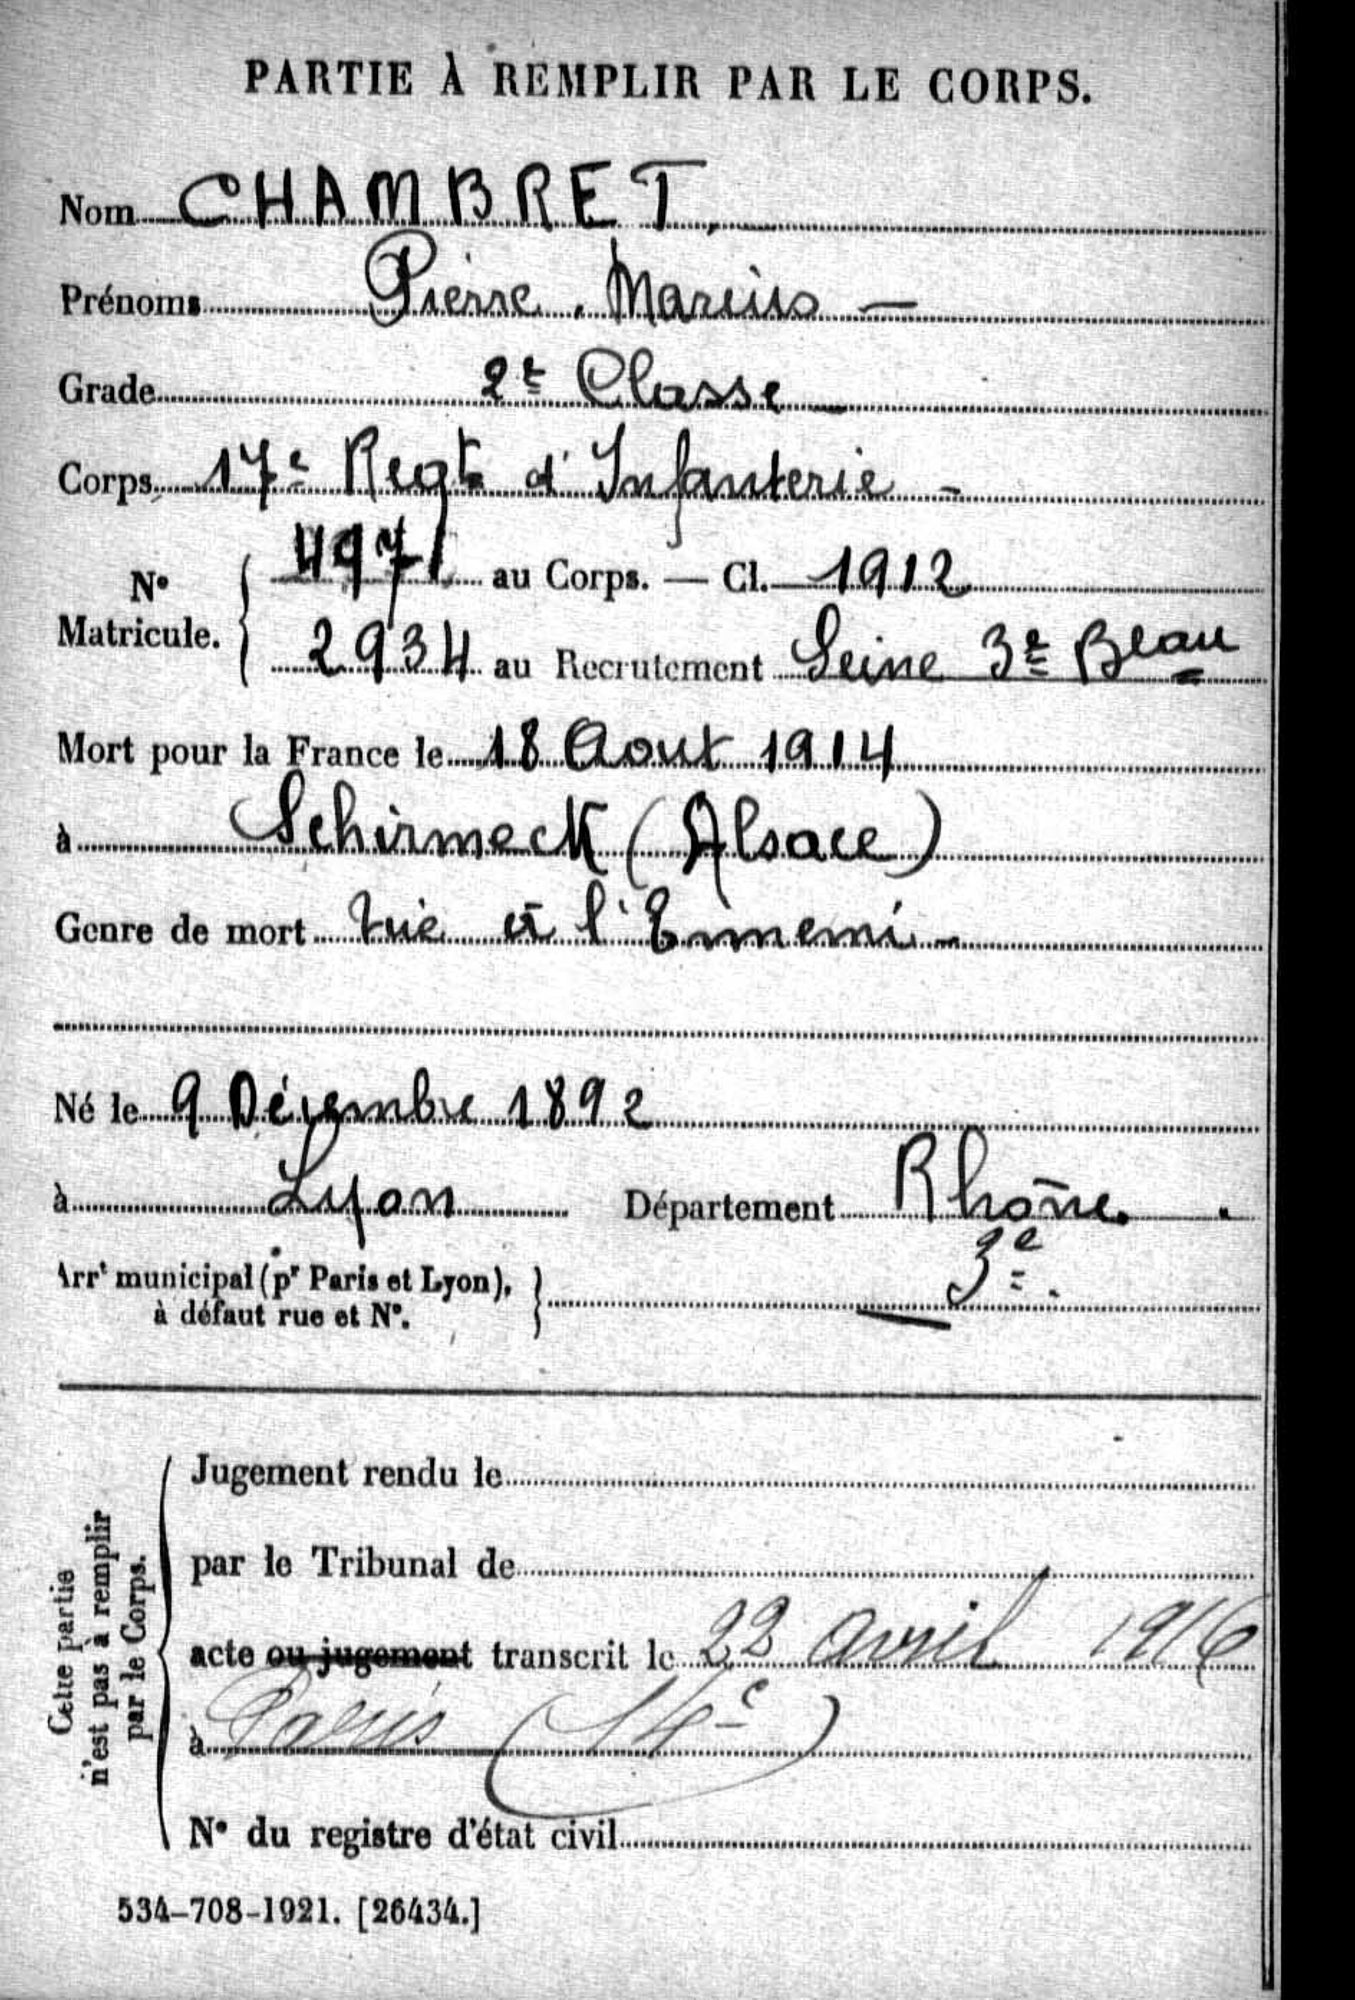 PARTIE À REMPLIR PAR LE CORPS.
Nom CHAMBRET
Prénoms Pierre, Marius —
Grade 2e Classe
Corps 17e Regt d'Infanterie -
No Matricule. { 4971 au Corps. — Cl. 1912
2934 au Recrutement Seine 3e Beau
Mort pour la France le 18 Aout 1914
à Schirmeck (Alsace)
Genre de mort tué à l'Ennemi -
Né le 9 Décembre 1892
à Lyon Département Rhône.
Arrt municipal (pr Paris et Lyon), à défaut rue et No. } 3e.
Cette partie n'est pas à remplir par le Corps.
Jugement rendu le
par le Tribunal de
acte ou jugement transcrit le 22 avril 1916
à Paris (14e)
No du registre d'état civil
534-708-1921. [26434.]